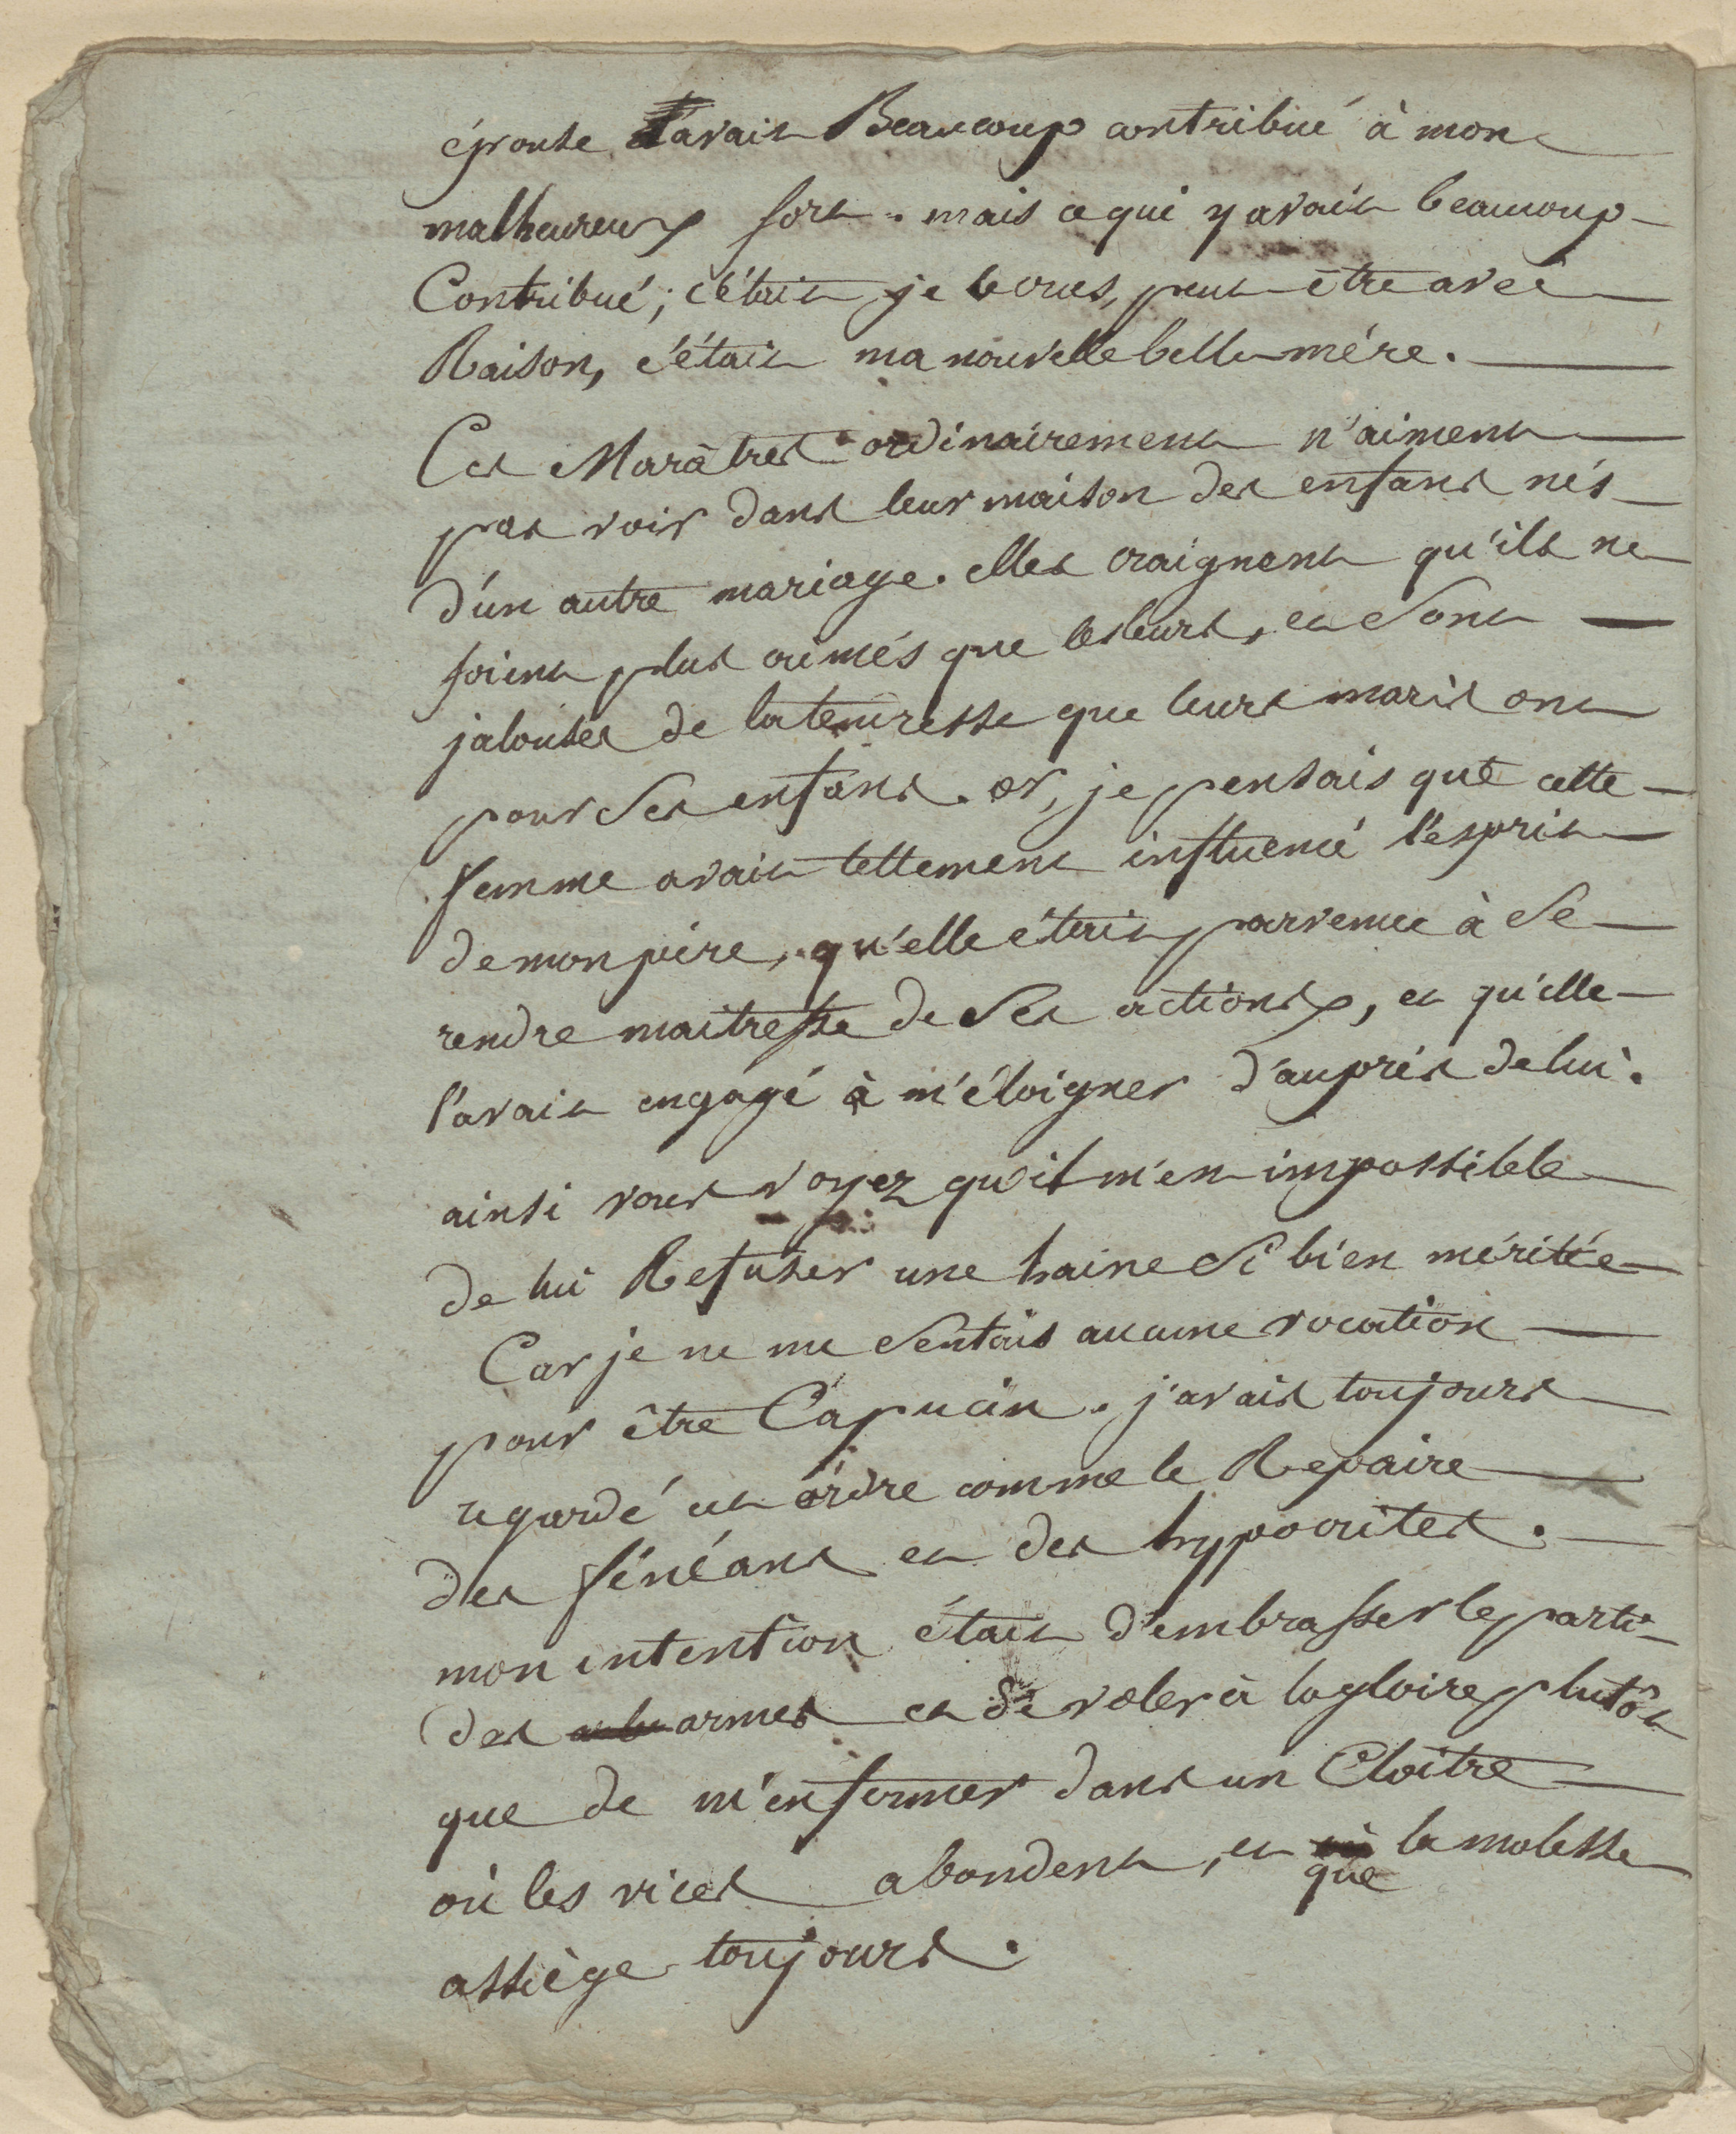 épouse avait Beaucoup contribué à mon
malheureux sort. mais ce qui y avait beaucoup
Contribué; c'était, je le crus, peut-être avec
Raison, c'était ma nouvelle belle mére.
Ces Marâtres ordinairement n'aiment
pas voir dans leur maison des enfans nés
d'un autre mariage. elles craignent qu'ils ne
soient plus aimés que les leurs, et sont
jalouses de la tendresse que leurs maris ont
pour ses enfans. or, je pensais que cette
femme avait tellement influencé l'esprit
de mon pére, qu'elle était parvenue à se
rendre maitresse de ses actions, et qu'elle
l'avait engagé à m'éloigner d'auprès de lui.
ainsi vous voyez qu'il m'est impossible
de lui Refuser une haine si bien méritée
Car je ne me sentais aucune vocation
pour être Capucin. j'avais toujours
regardé cet ordre comme le Repaire
des fénéans et des hypocrites.
mon intention était d'embrasser le parti
des armes et de voler à la gloire plutôt
que de m'enfermer dans un Cloître
où les vices abondent, et que la molesse
assiège toujours.